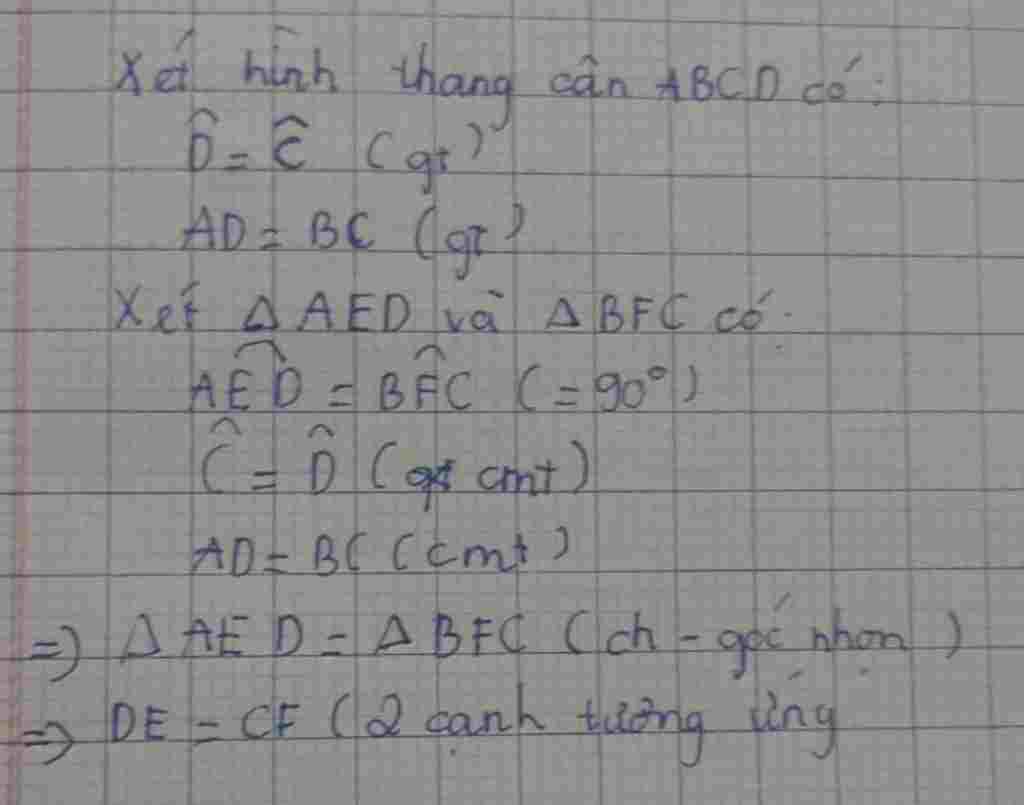 Xét hình thang cân ABCD có:
D̂ = Ĉ (gt)
AD = BC (gt)
Xét Δ AED và Δ BFC có:
AÊD = BF̂C (= 90°)
Ĉ = D̂ (cmt)
AD = BC (cmt)
=) Δ AED = Δ BFC (ch - góc nhọn)
=) DE = CF (2 cạnh tương ứng